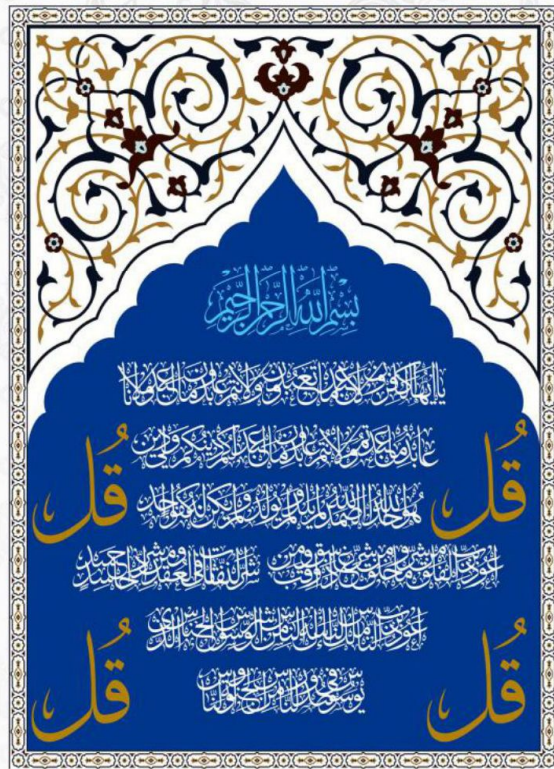 بسم الله الرحمن الرحيم
يا أيها الكافرون لا أعبد ما تعبدون ولا أنتم عابدون ما أعبد ولا أنا
عابد ما عبدتم ولا أنتم عابدون ما أعبد لكم دينكم ولي دين
قل
قل
هو الله أحد الله الصمد لم يلد ولم يولد ولم يكن له كفوا أحد
أعوذ برب الفلق من شر ما خلق ومن شر غاسق إذا وقب ومن شر النفاثات في العقد ومن شر حاسد إذا حسد
أعوذ برب الناس ملك الناس إله الناس من شر الوسواس الخناس الذي
قل
قل
يوسوس في صدور الناس من الجنة والناس